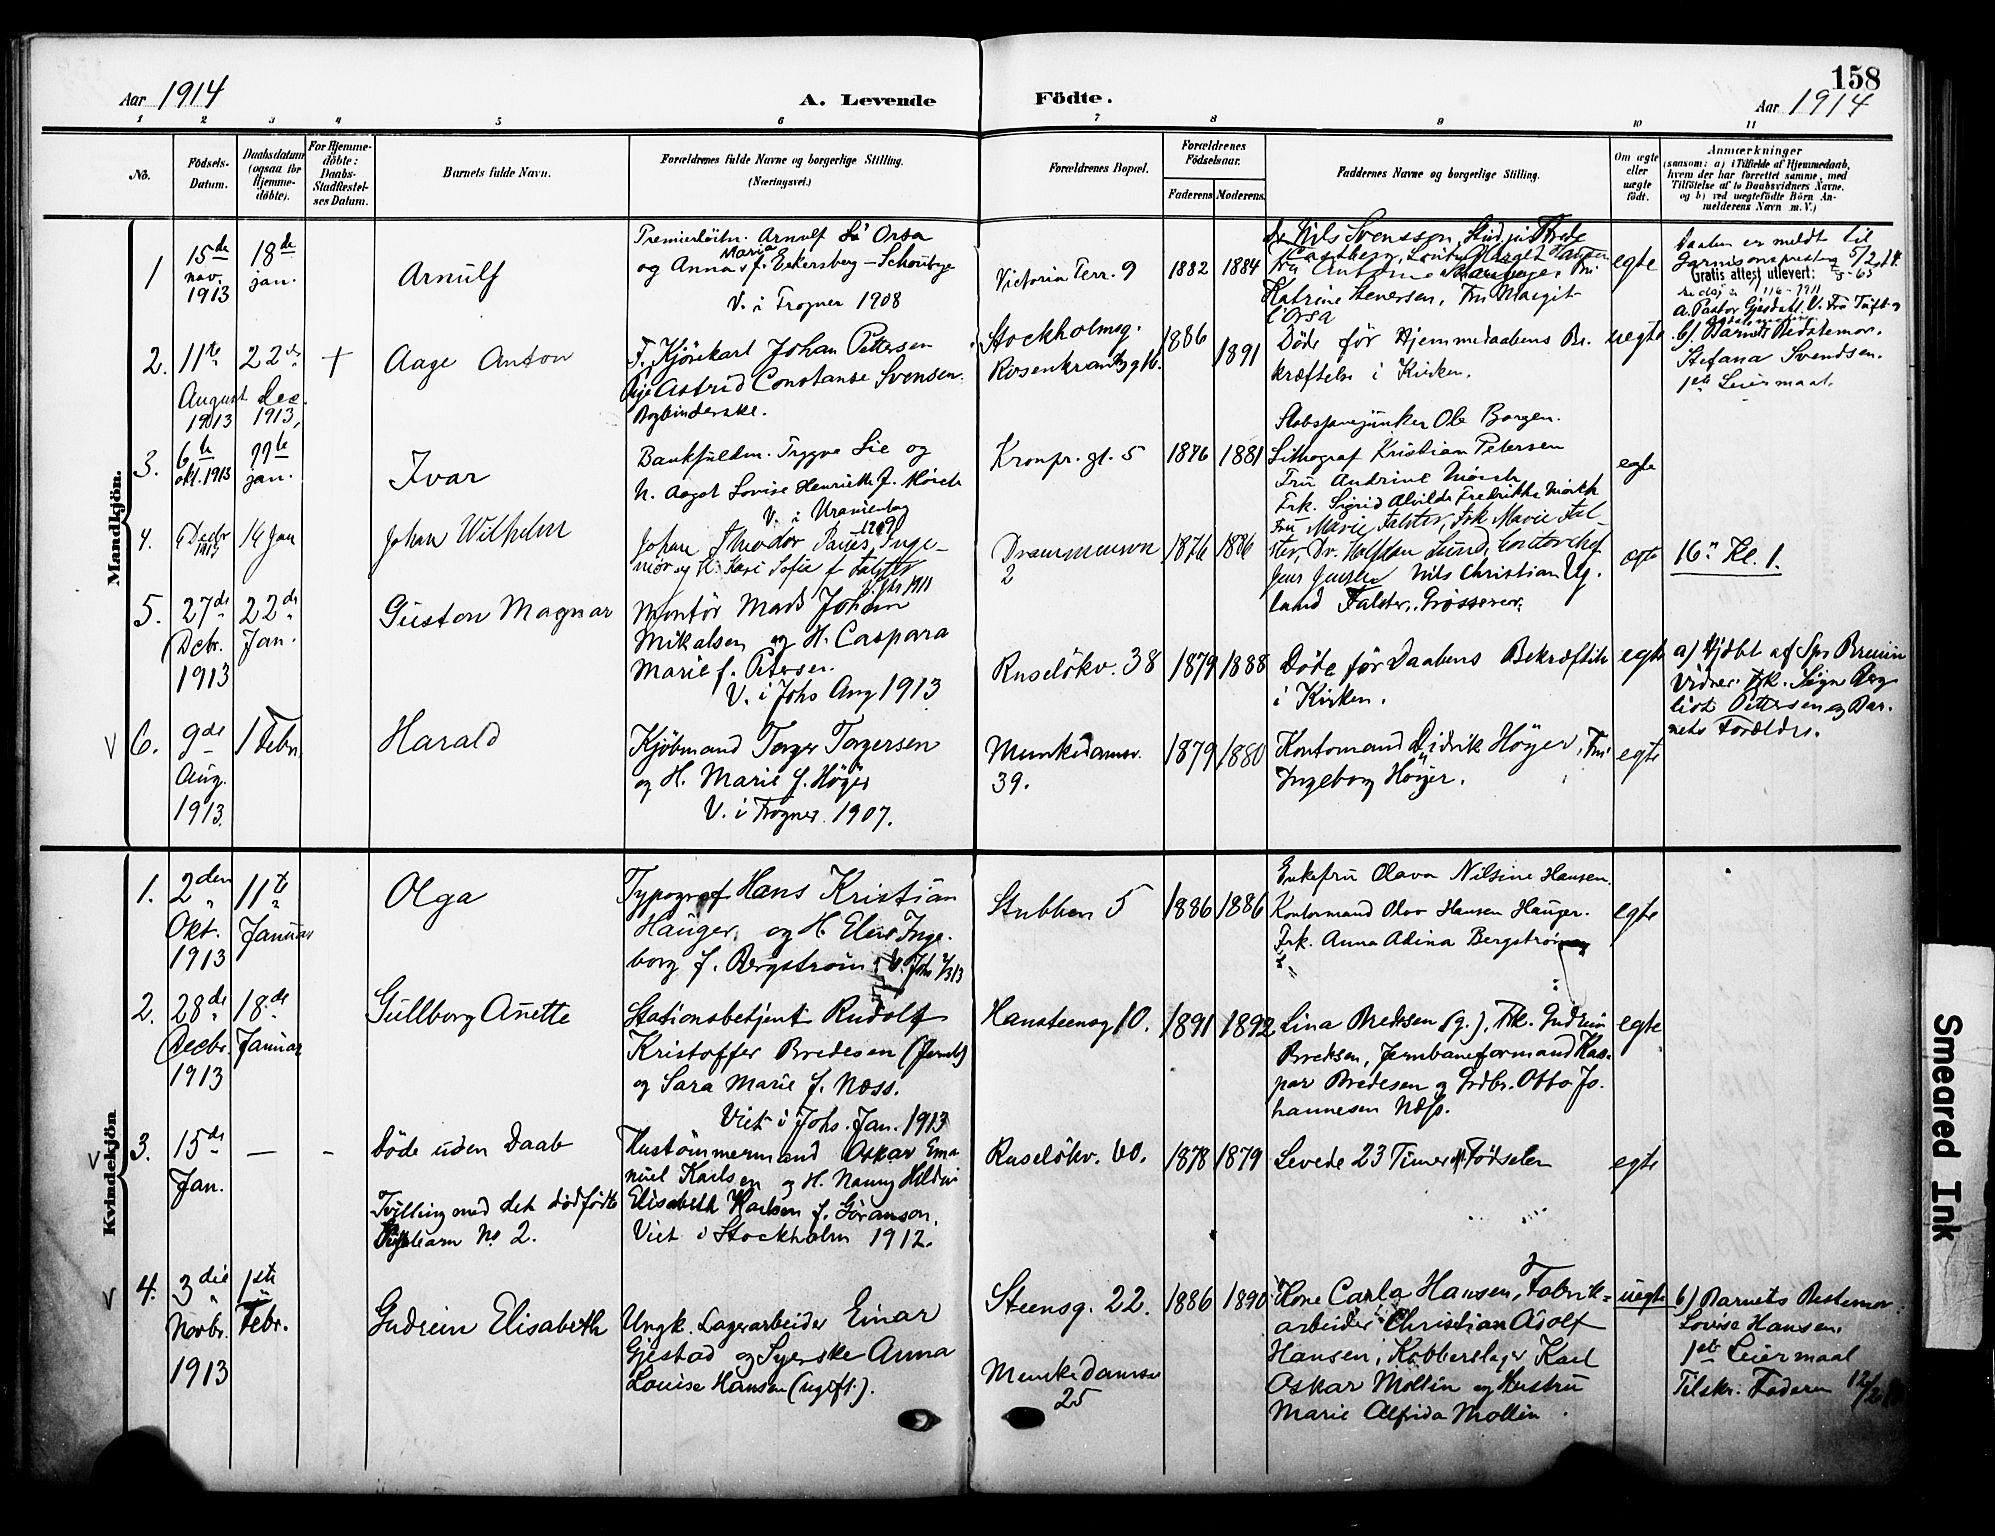 158
Aar 1914
A. Levende
Födte.
Aar 1914
1 2 3 4 5 6 7 8 9 10 11
No.
Födsels-
Datum.
Daabsdatum
(ogsaa for
Hjemme-
döbte).
For Hjemme-
döbte:
Daabs-
Stadfæstel-
ses Datum.
Barnets fulde Navn.
Forældrenes fulde Navne og borgerlige Stilling.
(Næringsvei.)
Forældrenes Bopæl.
Forældrenes
Födselsaar.
Faderens
Moderens
Faddernes Navne og borgerlige Stilling.
Om ægte
eller
uægte
født.
Anmærkninger
(saasom: a) i Tilfælde af Hjemmedaab,
hvem der har forrettet samme, med
Tilföielse af to Daabsvidners Navne,
og b) ved uægtefödte Börn An-
melderens Navn m.V.)
Mandkjön.
1
15de
nov.
1913
18de
jan.
Arnulf
og Anna Maria f. Eckersberg-Schouboge
V. i Frogner 1908
Victoria Terr. 9
1882
1884
Nils Svenssen
Katrine Stenersen, Fru Margit
Orsa
egte
Daaben er meldt til
Garnisonspresten 5/2 14.
Gratis attest utlevert:
2.
11te
August
1913
22de
Dec.
1913,
+
Aage Anton
F. Kjørekarl Johan Pettersen
Pige Astrid Constance Svensen.
Bogbinderske.
Stockholmsg.
Rosenkrantzg 16.
1886
1891
Döde før Hjemmedaabens Be-
kræftelse i Kirken.
uegte
b) Barnets Bedstemor.
Stefana Svendsen.
1ste Leiermaal.
3.
6te
okt. 1913
11te
jan.
Ivar
Bankfuldm. Trygve Lie og
H. Aagot Lovise Henriette f. Mörch
V. i Uranienborg
1909
Kronpr. gt. 5
1876
1881
Stabsfanejunker Ole Borgen.
Lithograf Kristian Petersen
Fru Andrine Mörch
Frk. Sigrid Alvilde Fredrikke Mörch
egte
4.
Decbr
1913
14 Jan
Johan Wilhelm
Johan Theodor Inge-
niør og H. Kari Sofie f Falster
Drammensvn
2
1876
1886
Fru Marie Falster, Frk Marie Fal-
ster, Dr. Halfdan Lund, Contorchef
Jens Jensen Nils Christian Ug-
land Falster, Grosserer.
egte
16" Kl. 1.
5.
27de
Decbr.
1913
22de
Jan.
Guston Magnar
Montör Mads Johan
Mikalsen og H. Caspara
Marie f. Petersen.
V. i Johs Aug 1913
Ruselökv. 38
1879
1888
Döde för Daabens Bekræftelse
i Kirken.
egte
a) Hjdbt af Spr Bruun
Vidner: Frk. Signe Berg-
liot Pettersen og Bar-
nets Forældre.
6.
9de
Aug.
1913.
1 Febr.
Harald
Kjöbmand Torger Torgersen
og H. Marie f. Höyer
V. i Frogner 1907.
Munkedamsv.
39.
1879
1880
Kontormand Didrik Höyer, Fru
Ingeborg Höyer.
egte
Kvindekjön
1.
2den
Okt.
1913
11te
Januar
Olga
Typograf Hans Kristian
Hauger og H. Elise Inge-
borg f. Bergström
Stubben 5
1886
1886
Enkefru Olava Nilsine Hansen.
Kontormand Olav Hansen Hauger.
Frk. Anna Adina Bergström
egte
2.
28de
Decbr.
1913
18de
Januar
Gullborg Anette
Stationsbetjent Rudolf
Kristoffer Bredesen (Jernb)
og Sara Marie f. Næss.
Viet i Johs. Jan. 1913
Hansteensg 10.
1891
1892
Lina Bredesen (g.), Frk. Gudrun
Bredesen, Jernbaneformand Kas-
par Bredesen og Grdbr. Otto Jo-
hannesen Næss.
egte
3.
15de
Jan.
—
-
Döde uden Daab
Tvilling med det dödfødte
Pigebarn No 2.
Hustömmermand Oskar Ema-
nuel Karlsen og H. Nanny Hildur
Elisabeth Karlsen f. Göranson.
Viet i Stockholm 1912.
Ruselökv. 60.
1878
1879
Levede 23 Timer e. Fødselen
egte
4.
3die
Novbr.
1913
1ste
Febr.
Gudrun Elisabeth
Ungk. Lagerarbeider Einar
Gjestad og Syerske Anna
Louise Hansen (ugift).
Steensg. 22.
Munkedamsv
25
1886
1890
Kone Carla Hansen, Fabrik-
arbeider Christian Adolf
Hansen, Kobberslager Karl
Oskar Mollin og Hustru
Marie Alfrida Mollin.
uegte
b) Barnets Bestemor.
Lovise Hansen.
1ste Leiermaal
Tilskr. Faderen 12/2
Smeared Ink